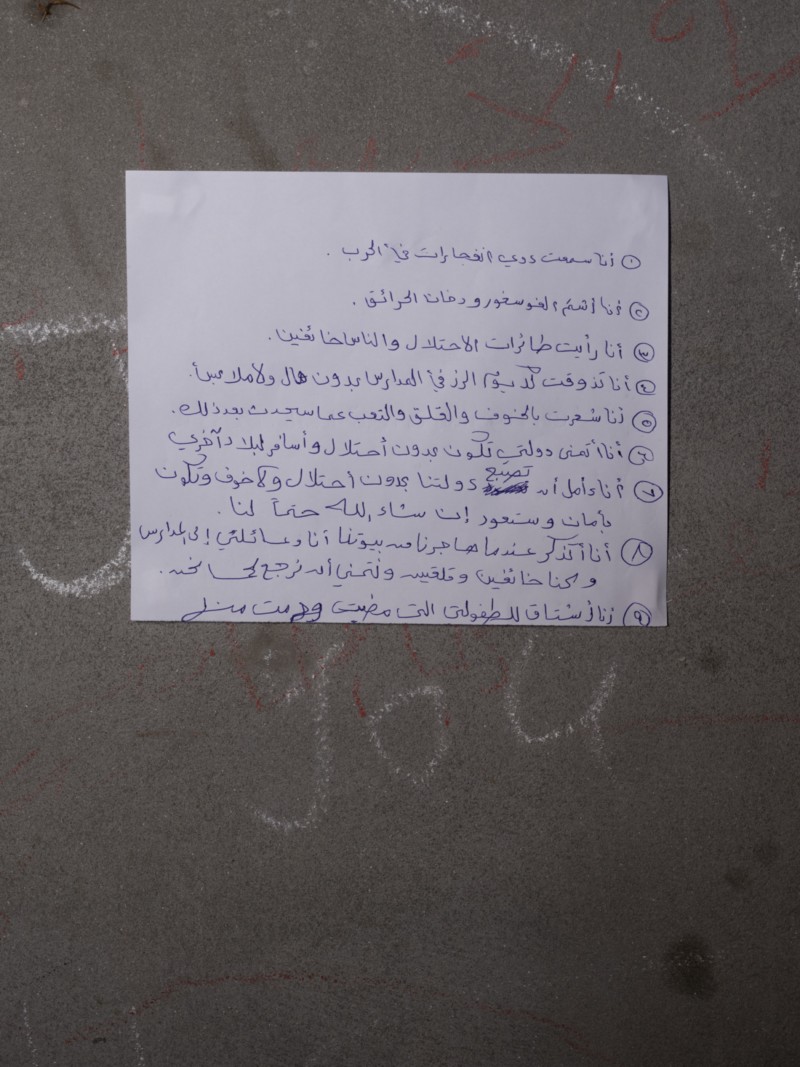 ١ أنا سمعت دوي انفجارات في الحرب .
٢ أنا أشتم الفوسفور ودخان الحرائق .
٣ أنا رأيت طائرات الاحتلال والناس خائفين .
٤ أنا تذوقت الرز في المدارس بدون ولا ملامس .
٥ أنا شعرت بالخوف والقلق والتعب عما سيحدث بعد ذلك .
٦ أنا أتمنى دولتي تكون بدون أحتلال وأسافر لبلاد آخرى
٧ أنا ءامل أن تصبح دولتنا بدون أحتلال ولا خوف وتكون
بأمان وستعود إن شاء الله حتماً لنا .
٨ أنا أتذكر عندما هاجرنا من بيوتنا أنا وعائلتي إلى مدارس
ونحنا خائفين وقلقين ونتمنى أن نرجع كما نحن .
٩ أنا أشتاق للطفولتي التي مضيت